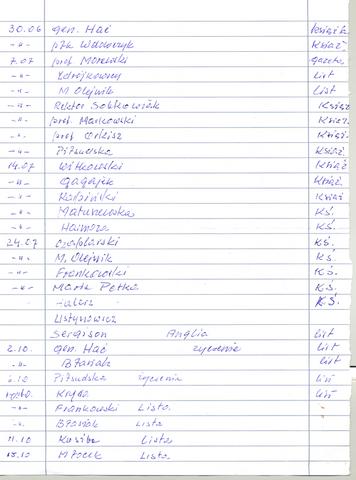 30.06 gen. Hać książk
-"- płk Wdowczyk Książ
7.07 prof Morawski gazeta
-"- Zdrojkowscy List
-"- M. Olejnik List
-"- Rektor Sobkowiak Książ
-"- prof. Markowski Książ
-"- prof Książ
-"- Piłsudska Książ
14.07 Witkowski Książ
-"- Gagajek Książ
-"- Książ
-"- Matunewska KŚ.
-"- KŚ.
24.07 KŚ.
-"- M. Olejnik KŚ.
-"- Frankowski KŚ.
-"- Marta Petka KŚ.
KŚ.
Ustynowicz
Sergison Anglia list
2.10. gen. Hać życzenia list
-"- Błasiak list
.10 Piłsudska życzenia list
Kryda list
-"- Frankowski Lista
-"- Błasiak Lista
11.10 Kusiba Lista
15.10 Młocek Lista